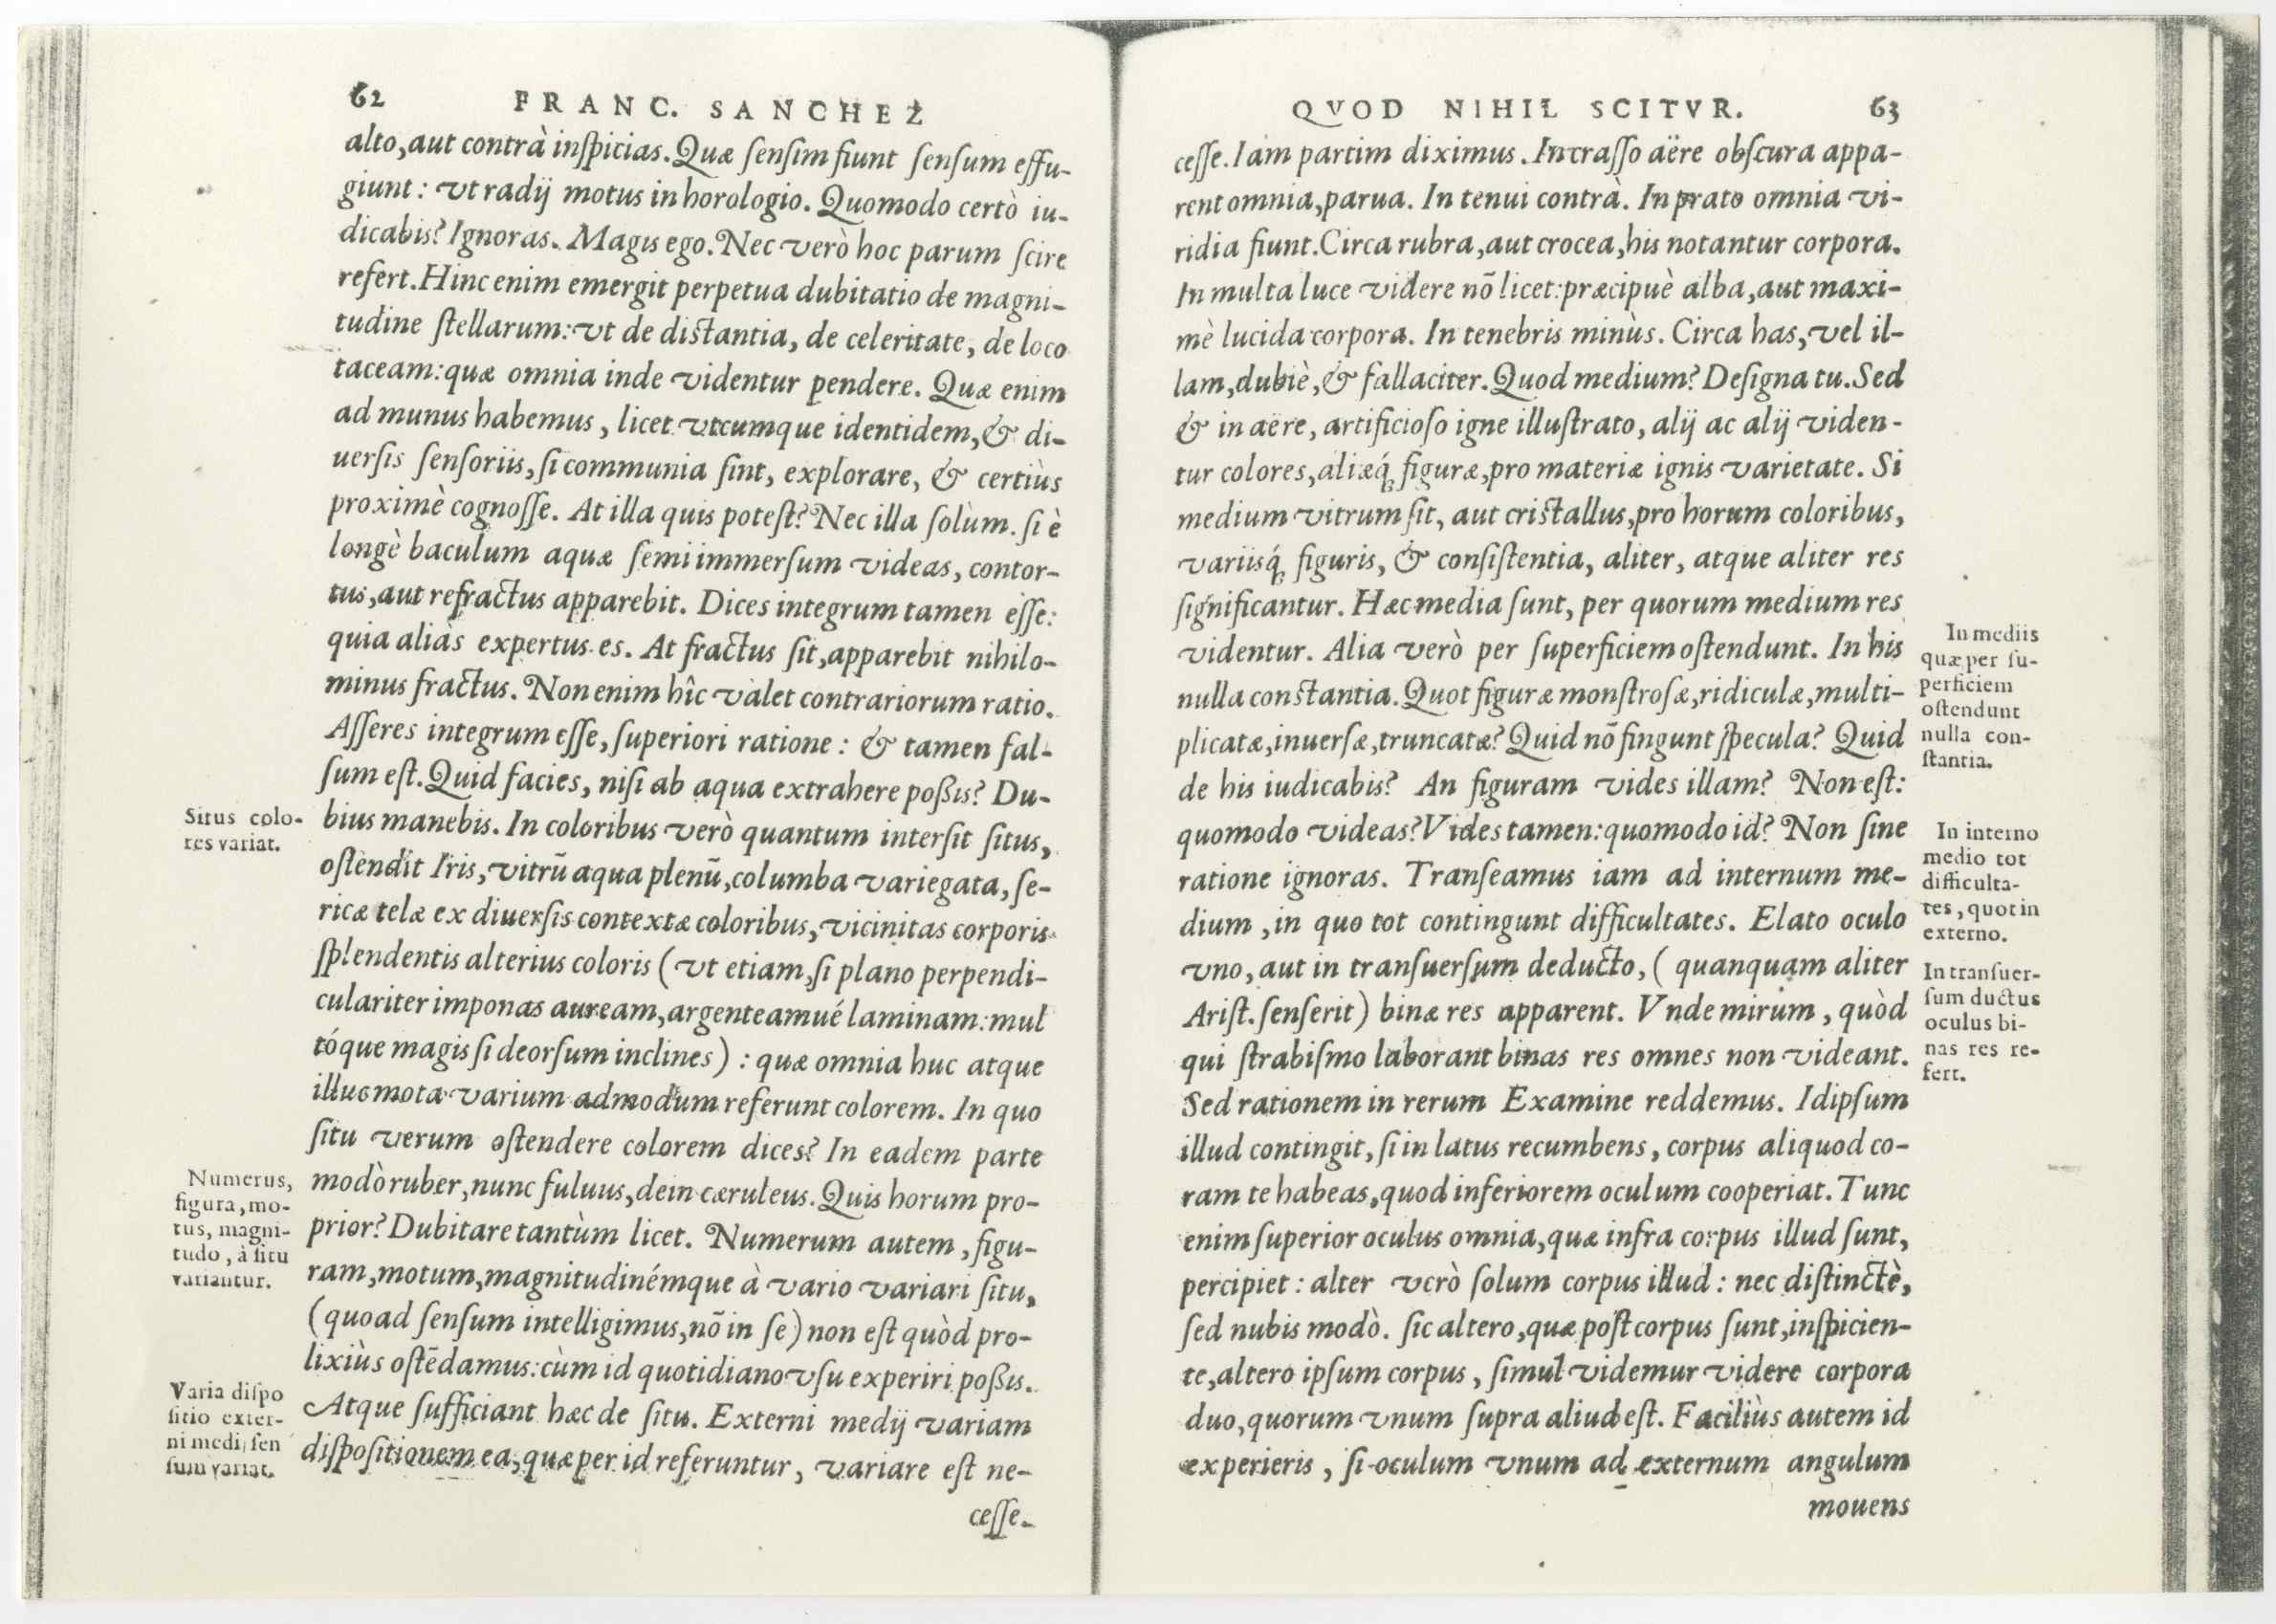 62 FRANC. SANCHEZ
alto,aut contrà inſpicias. Quæ ſenſim fiunt ſenſum effu-
giunt: vt radij motus in horologio. Quomodo certò iu-
dicabis? Ignoras. Magis ego. Nec verò hoc parum ſcire
refert. Hinc enim emergit perpetua dubitatio de magni-
tudine ſtellarum: vt de distantia, de celeritate, de loco
taceam: quæ omnia inde videntur pendere. Quæ enim
ad munus habemus, licet vtcumque identidem, & di-
uerſis ſenſoriis, ſi communia ſint, explorare, & certiùs
proximè cognoſſe. At illa quis poteſt? Nec illa ſolùm. ſi è
longè baculum aquæ ſemiimmerſum videas, contor-
tus, aut refractus apparebit. Dices integrum tamen eſſe:
quia aliàs expertus es. At fractus ſit, apparebit nihilo-
minus fractus. Non enim hîc valet contrariorum ratio.
Aſſeres integrum eſſe, ſuperiori ratione: & tamen fal-
ſum eſt. Quid facies, niſi ab aqua extrahere poßis? Du-
Situs colo-
res variat.
bius manebis. In coloribus verò quantum interſit ſitus,
oſtendit Iris, vitrũ aqua plenũ, columba variegata, ſe-
ricæ telæ ex diuerſis contextæ coloribus, vicinitas corporis
ſplendentis alterius coloris (vt etiam, ſi plano perpendi-
culariter imponas auream, argenteamué laminam: mul
tóque magis ſi deorſum inclines): quæ omnia huc atque
illuc mota varium admodum referunt colorem. In quo
ſitu verum oſtendere colorem dices? In eadem parte
Numerus,
figura, mo-
tus, magni-
tudo, à ſitu
variantur.
modò ruber, nunc fuluus, dein cæruleus. Quis horum pro-
prior? Dubitare tantùm licet. Numerum autem, figu-
ram, motum, magnitudinémque à vario variari ſitu,
(quoad ſenſum intelligimus, nõ in ſe) non eſt quòd pro-
lixiùs oſtẽdamus: cùm id quotidiano vſu experiri poßis.
Varia diſpo
ſitio exter-
ni medij ſen
ſum variat.
Atque ſufficiant hæc de ſitu. Externi medij variam
diſpoſitionem ea, quæ per id referuntur, variare eſt ne-
ceſſe.
QVOD NIHIL SCITVR. 63
ceſſe. Iam partim diximus. In craſſo aëre obſcura appa-
rent omnia, parua. In tenui contrà. In prato omnia vi-
ridia fiunt. Circa rubra, aut crocea, his notantur corpora.
In multa luce videre nõ licet: præcipuè alba, aut maxi-
mè lucida corpora. In tenebris minùs. Circa has, vel il-
lam, dubiè, & fallaciter. Quod medium? Deſigna tu. Sed
& in aëre, artificioſo igne illuſtrato, alij ac alij viden-
tur colores, aliæq́; figuræ, pro materiæ ignis varietate. Si
medium vitrum ſit, aut criſtallus, pro horum coloribus,
variisq́; figuris, & conſiſtentia, aliter, atque aliter res
ſignificantur. Hæc media ſunt, per quorum medium res
videntur. Alia verò per ſuperficiem oſtendunt. In his
nulla constantia. Quot figuræ monſtroſæ, ridiculæ, multi-
plicatæ, inuerſæ, truncatæ? Quid nõ fingunt ſpecula? Quid
de his iudicabis? An figuram vides illam? Non eſt:
In mediis
quæ per ſu-
perficiem
oſtendunt
nulla con-
ſtantia.
quomodo videas? Vides tamen: quomodo id? Non ſine
ratione ignoras. Tranſeamus iam ad internum me-
dium, in quo tot contingunt difficultates. Elato oculo
In interno
medio tot
difficulta-
tes, quot in
externo.
vno, aut in tranſuerſum deducto, (quanquam aliter
Ariſt. ſenſerit) binæ res apparent. Vnde mirum, quòd
qui ſtrabiſmo laborant binas res omnes non videant.
In tranſuer-
ſum ductus
oculus bi-
nas res re-
fert.
Sed rationem in rerum Examine reddemus. Idipſum
illud contingit, ſi in latus recumbens, corpus aliquod co-
ram te habeas, quod inferiorem oculum cooperiat. Tunc
enim ſuperior oculus omnia, quæ infra corpus illud ſunt,
percipiet: alter verò ſolum corpus illud: nec diſtinctè,
ſed nubis modò. ſic altero, quæ poſt corpus ſunt, inſpicien-
te, altero ipſum corpus, ſimul videmur videre corpora
duo, quorum vnum ſupra aliud eſt. Faciliùs autem id
experieris, ſi oculum vnum ad externum angulum
mouens